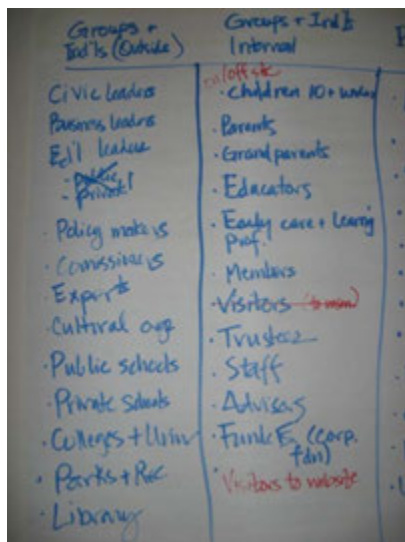 Groups +
Ind'ls (Outside)
Civic leaders
Business leaders
Ed'l leaders
- Public
- Private
· Policy makers
· Comissioners
· Experts
· Cultural org
· Public schools
· Private Schools
· Colleges + Univ
· Parks + Rec
· Library
Groups + Ind'ls
Internal
on/off site
· Children 10 + under
· Parents
· Grandparents
· Educators
· Early care + Learning
Prof.
· Members
· Visitors
· Trustees
· Staff
· Advisors
· Funders (corp.
fdn)
· Visitors to website